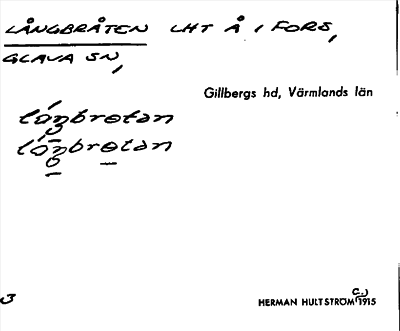 LÅNGBRÅTEN LHT Å I FORS,
GLAVA SN,
Gillbergs hd, Värmlands län
låŋbrotan
låŋbrotan
3
HERMAN HULTSTRÖM 1915